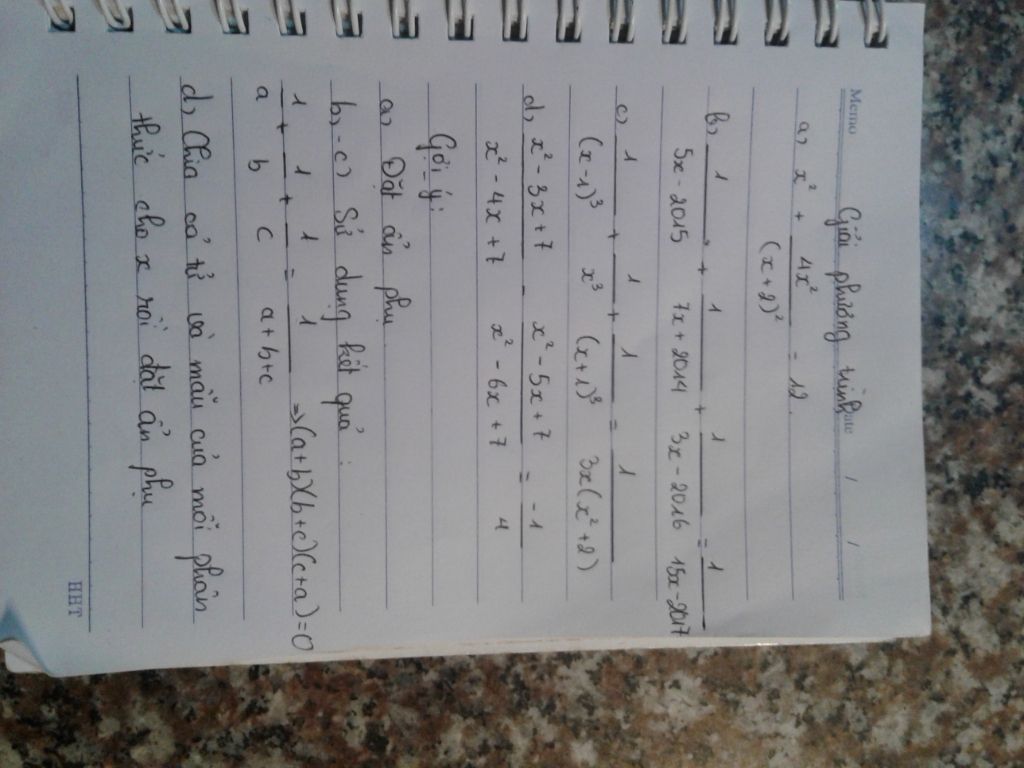 Memo
Date / /
Giải phương trình
a, x² + 4x²/(x+2)² = 12.
b, 1/(5x - 2015) + 1/(7x + 2014) + 1/(3x - 2016) = 1/(15x - 2017)
c, 1/(x-1)³ + 1/x³ + 1/(x+1)³ = 1/(3x(x²+2))
d, (x² - 3x + 7)/(x² - 4x + 7) - (x² - 5x + 7)/(x² - 6x + 7) = -1/4
Gợi ý:
a, Đặt ẩn phụ
b, - c, Sử dụng kết quả:
1/a + 1/b + 1/c = 1/(a+b+c) => (a+b)(b+c)(c+a) = 0
d, Chia cả tử và mẫu của mỗi phân
thức cho x rồi đặt ẩn phụ
HHT